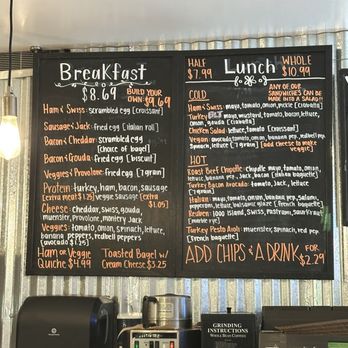 Breakfast
$8.69
BUILD YOUR OWN: $9.69
Ham & Swiss: scrambled egg [croissant]
Sausage & Jack: fried egg [italian roll]
Bacon & Cheddar: scrambled egg
[choice of bagel]
Bacon & Gouda: fried egg [biscuit]
Veggies & Provolone: fried egg [7 grain]
Protein: turkey, ham, bacon, sausage
[extra meat $1.75] veggie sausage [extra $1.05]
Cheese: cheddar, swiss, gouda,
muenster, provolone, monterey Jack
Veggies: tomato, onion, spinach, lettuce,
banana peppers, red bell peppers
[avocado $1.25]
Ham or Veggie
Quiche $4.99
Toasted Bagel w/
Cream Cheese $3.25
HALF
$7.99
Lunch
WHOLE
$10.99
ANY OF OUR
SANDWICHES CAN BE
MADE INTO A SALAD!!
COLD
Ham & Swiss: mayo, tomato, onion, pickle [craisana]
Turkey mayo, mustard, tomato, bacon, lettuce,
onion, gouda [ciabatta]
Chicken Salad: lettuce, tomato [croissant]
Vegan: avocado, tomato, onion, banana pep, red bell
pep, spinach, lettuce [7 grain] [add cheese to make
veggie]
HOT
Roast Beef: chipotle mayo, tomato, onion,
lettuce, banana pep, Jack, bacon [italian baguette]
Turkey Bacon Avocado: tomato, Jack, lettuce
[7 grain]
Italian: mayo, tomato, onion, banana pep, salami,
pepperoni, lettuce, balsamic glaze [French baguette]
Reuben: 1000 Island, Swiss, Pastrami, sauerkraut
[marble rye]
Turkey Pesto Aioli: muenster, spinach, red pep
[French baguette]
ADD CHIPS & A DRINK FOR
$2.29
GRINDING
INSTRUCTIONS